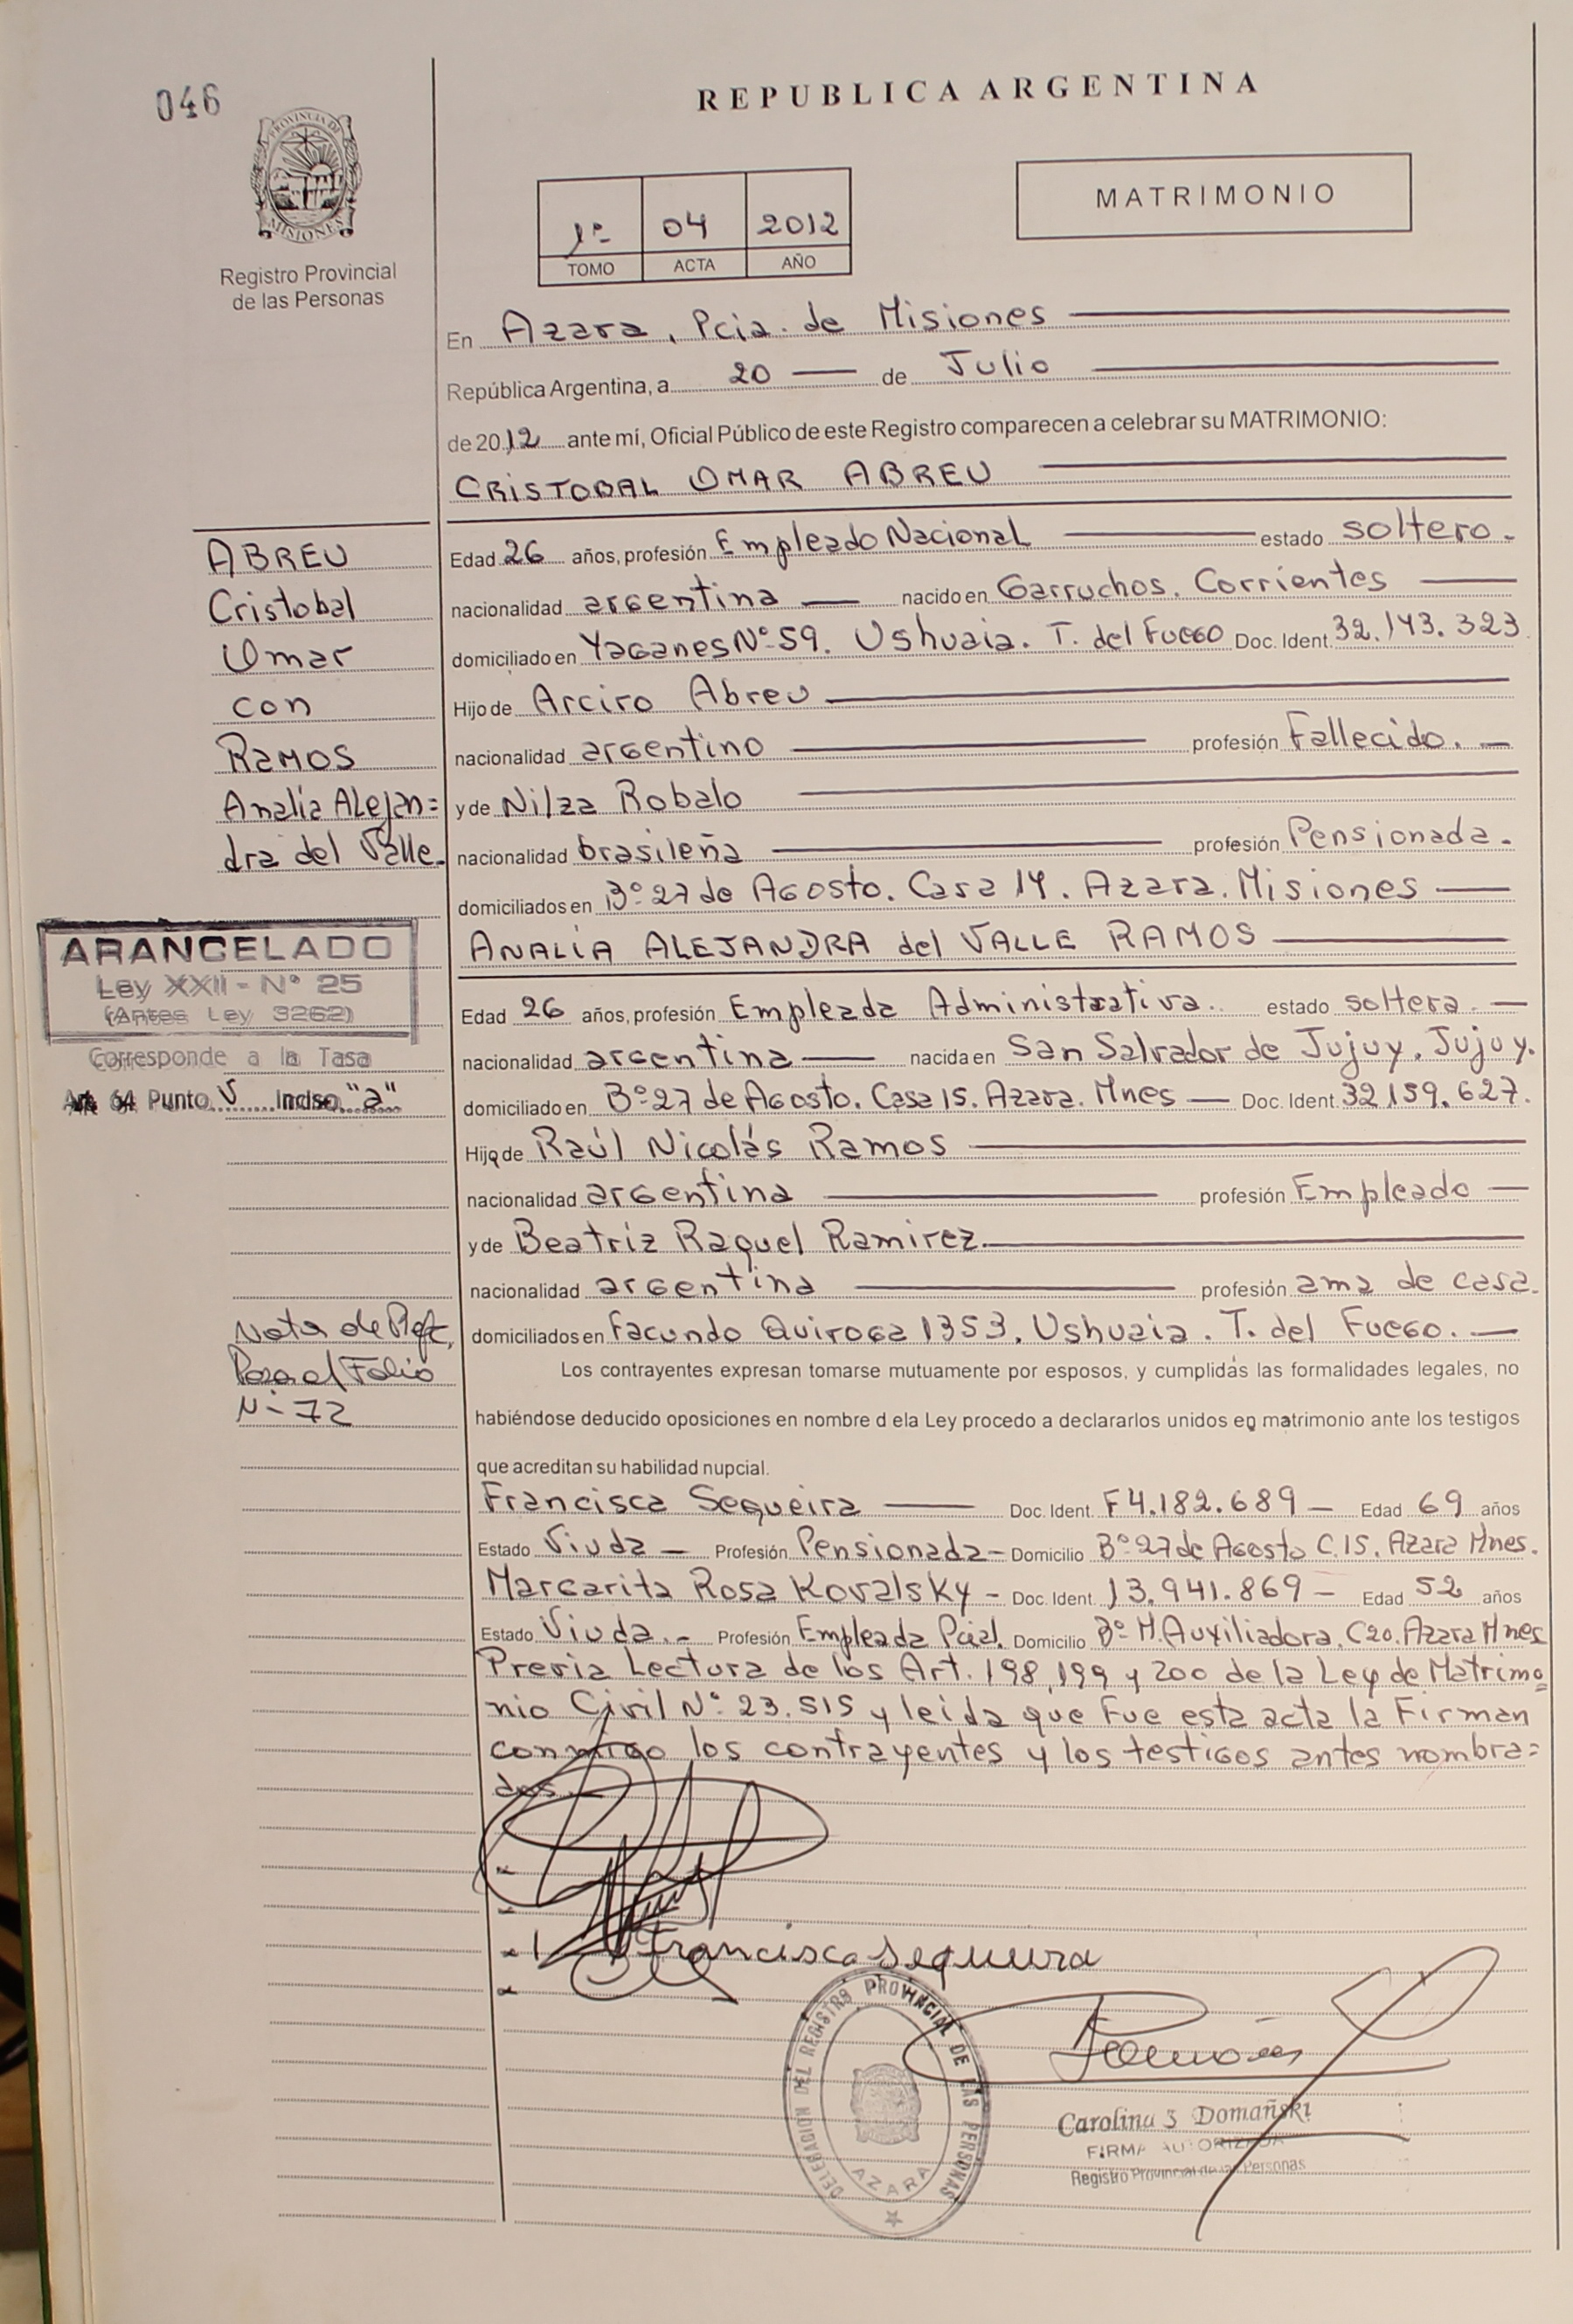 046
REPUBLICA ARGENTINA
PROVINCIA DE
MISIONES
Registro Provincial
de las Personas
1º 04 2012
TOMO ACTA AÑO
MATRIMONIO
En Azara, Pcia. de Misiones
República Argentina, a 20 de Julio
de 2012 ante mí, Oficial Público de este Registro comparecen a celebrar su MATRIMONIO:
CRISTOBAL OMAR ABREU
ABREU
Cristobal
Omar
con
RAMOS
Analía Alejan=
dra del Valle.
Edad 26 años, profesión Empleado Nacional estado soltero.
nacionalidad argentina nacido en Garruchos. Corrientes
domiciliado en Yaganes Nº 59. Ushuaia. T. del Fuego Doc. Ident. 32.143.323
Hijo de Arciro Abreu
nacionalidad argentino profesión Fallecido.
y de Nilza Robalo
nacionalidad brasileña profesión Pensionada.
domiciliados en Bº 27 de Agosto. Casa 14. Azara. Misiones
ANALÍA ALEJANDRA del VALLE RAMOS
ARANCELADO
Ley XXII - Nº 25
(Antes Ley 3262)
Corresponde a la Tasa
Art. 64 Punto V Inciso "a"
Edad 26 años, profesión Empleada Administrativa. estado soltera.
nacionalidad argentina nacida en San Salvador de Jujuy. Jujuy.
domiciliado en Bº 27 de Agosto. Casa 15. Azara. Mnes Doc. Ident. 32.159.627.
Hija de Raúl Nicolás Ramos
nacionalidad argentina profesión Empleado
y de Beatríz Raquel Ramirez.
nacionalidad argentina profesión ama de casa.
domiciliados en Facundo Quiroga 1353. Ushuaia. T. del Fuego.
Nota de Ref.
Pasa al Folio
Nº 72
Los contrayentes expresan tomarse mutuamente por esposos, y cumplidas las formalidades legales, no
habiéndose deducido oposiciones en nombre d ela Ley procedo a declararlos unidos en matrimonio ante los testigos
que acreditan su habilidad nupcial.
Francisca Sequeira Doc. Ident. F4.182.689 Edad 69 años
Estado Viuda Profesión Pensionada Domicilio Bº 27 de Agosto C.15. Azara Mnes.
Margarita Rosa Kovalsky Doc. Ident. 13.941.869 Edad 52 años
Estado Viuda. Profesión Empleada Pcial. Domicilio Bº M. Auxiliadora. C20. Azara Mnes
Previa Lectura de los Art. 198, 199 y 200 de la Ley de Matrimo=
nio Civil Nº 23.515 y leída que fue esta acta la Firman
conmigo los contrayentes y los testigos antes nombra=
dos.
Francisca Sequeira
DELEGACION DEL REGISTRO PROVINCIAL DE LAS PERSONAS
AZARA
Carolina Domañski
FIRMA AUTORIZADA
Registro Provincial de las Personas